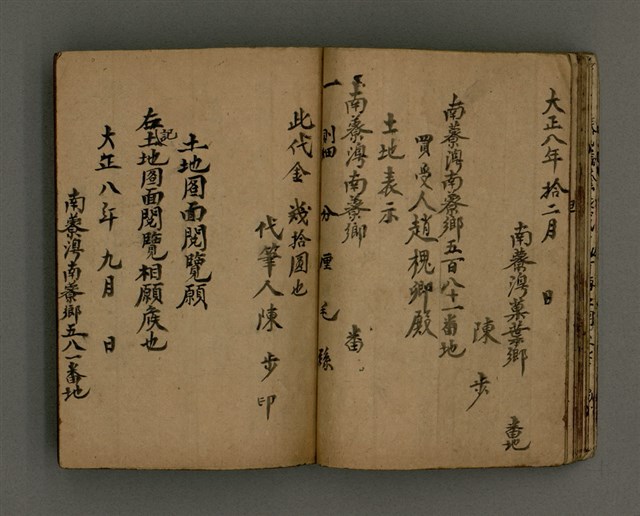 大正八年拾二月　日
南藔澚菓葉鄉　番地
陳步
南藔澚南藔鄉五百八十一番地
買受人趙槐卿殿
土地表示
南藔澚南藔鄉　番
一則四分厘毛絲
此代金幾拾圓也
代筆人陳步印
土地圖面閱覽願
右記土地圖面閱覽相願候也
大正八年九月　日
南藔澚南藔鄉五八一番地